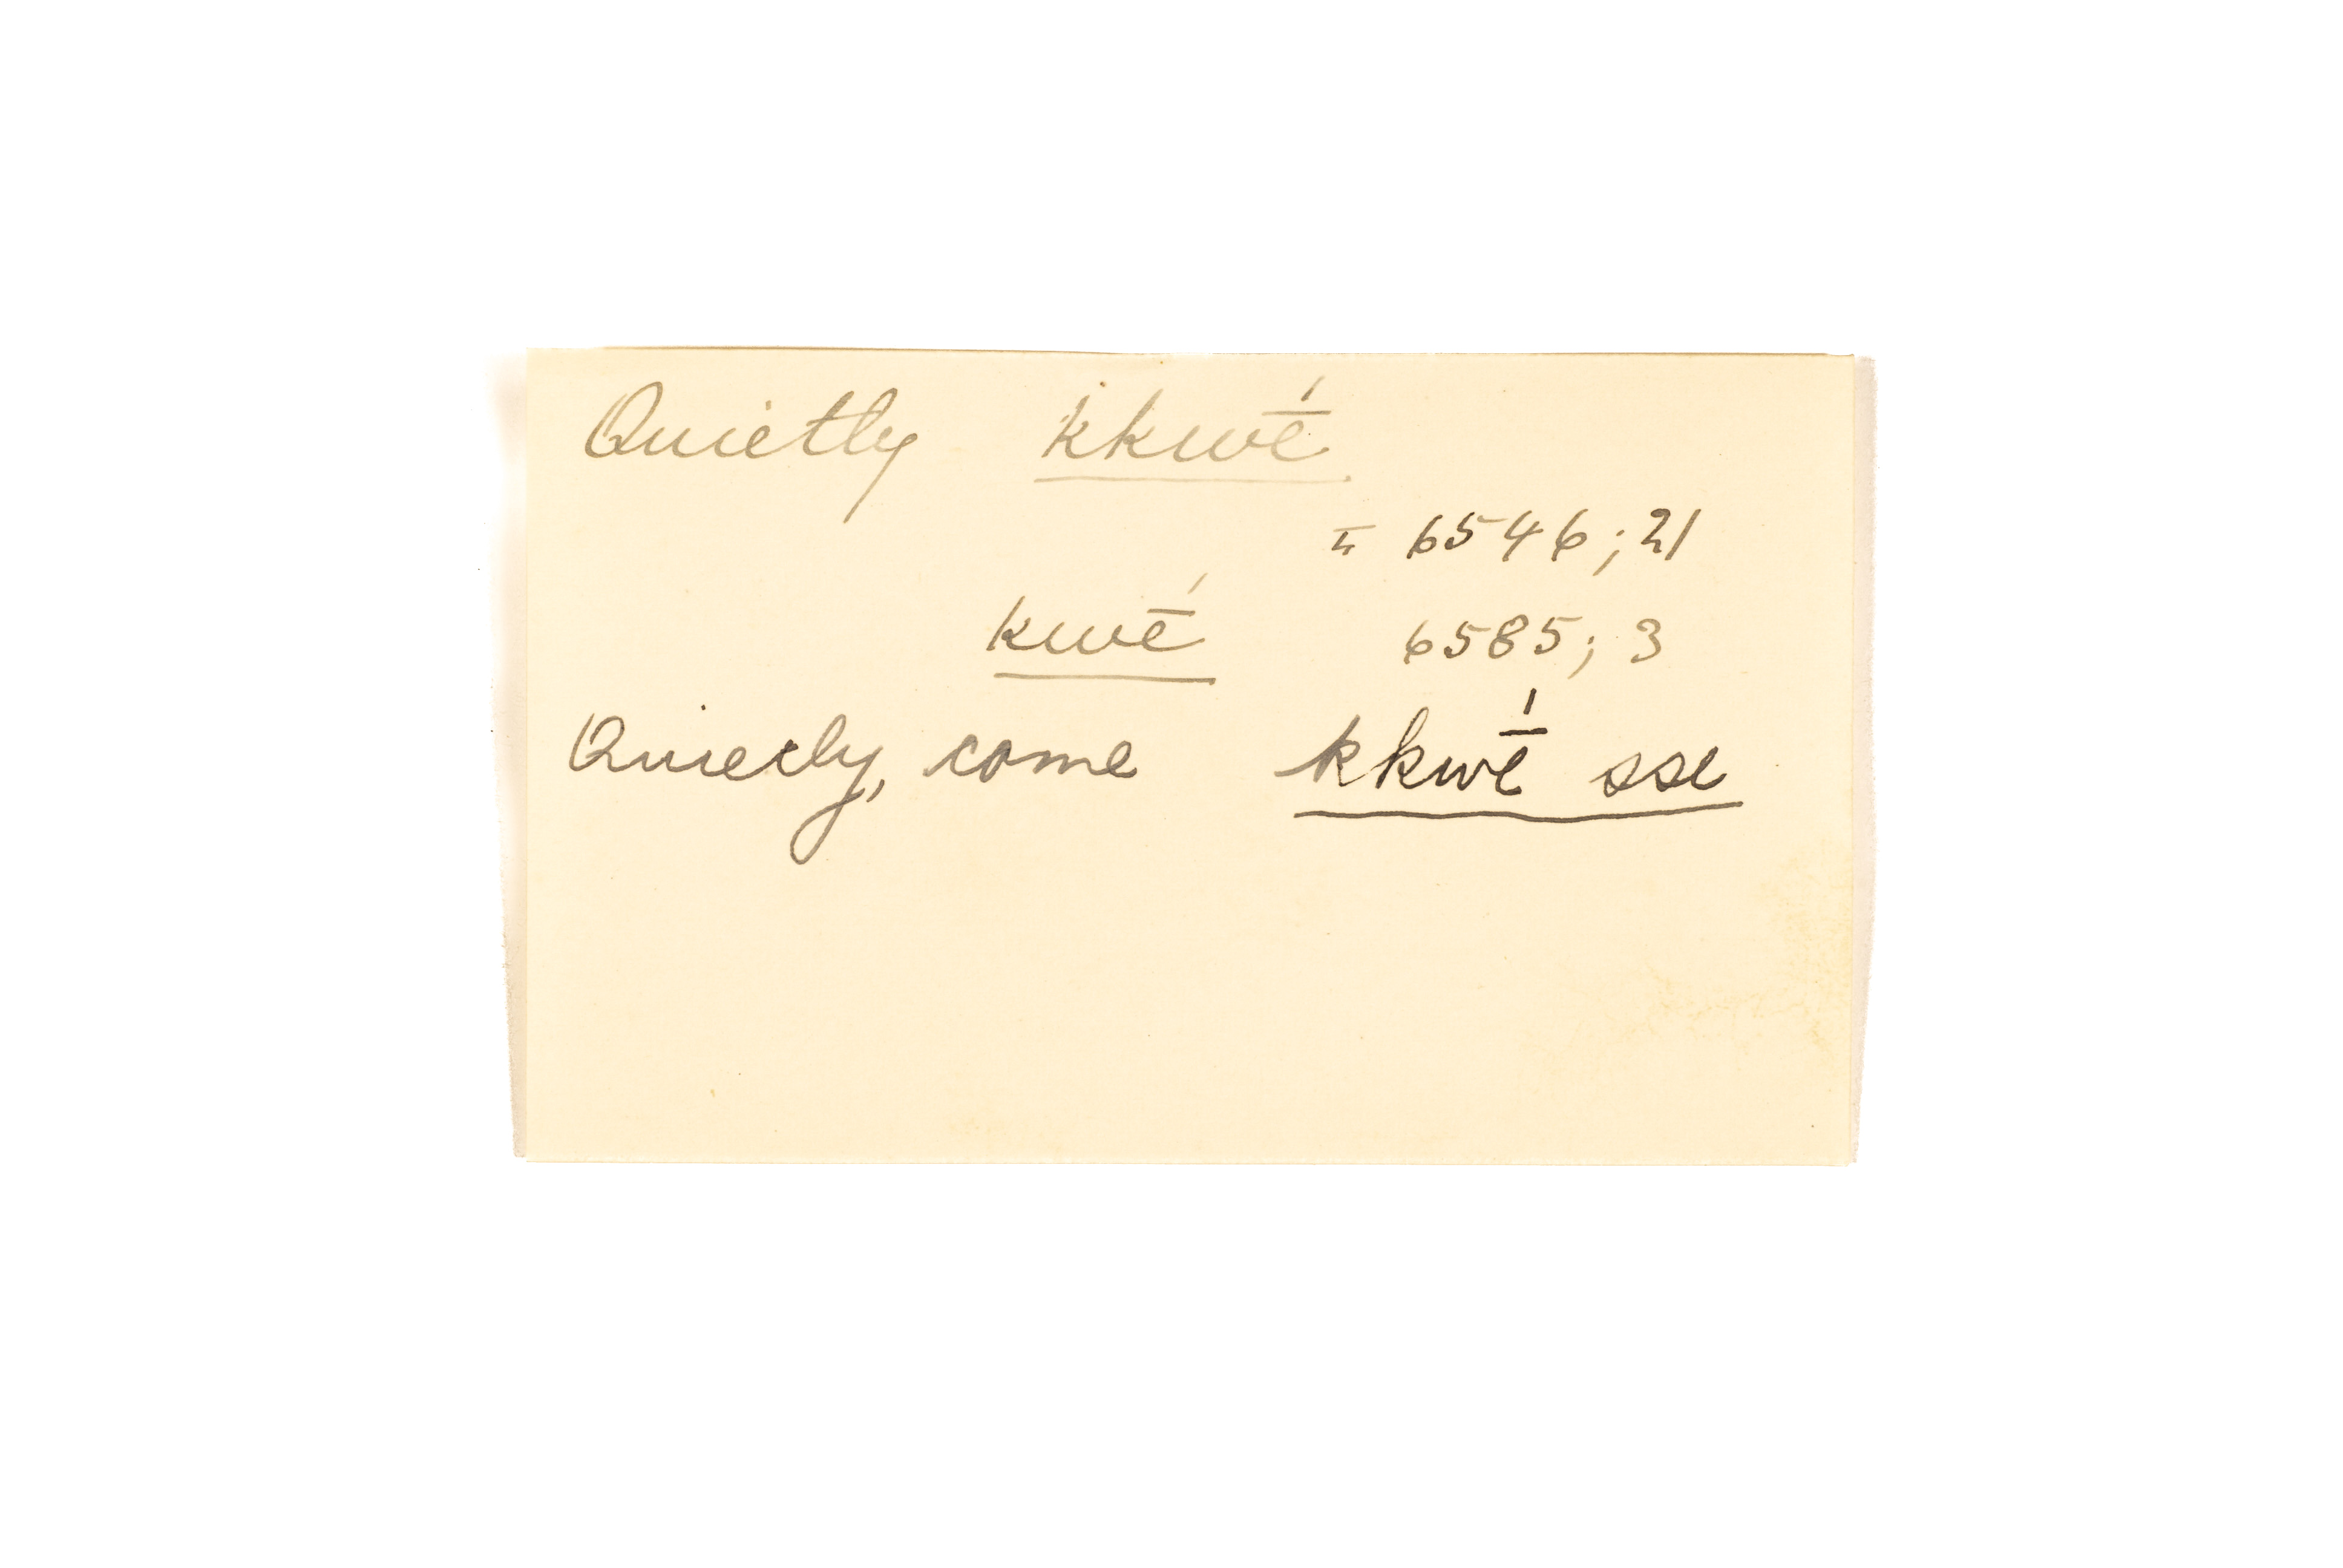 Quietly kkwḗ
= 6546; 21
kwḗ 6585; 3
Quietly, come kkwḗ sse